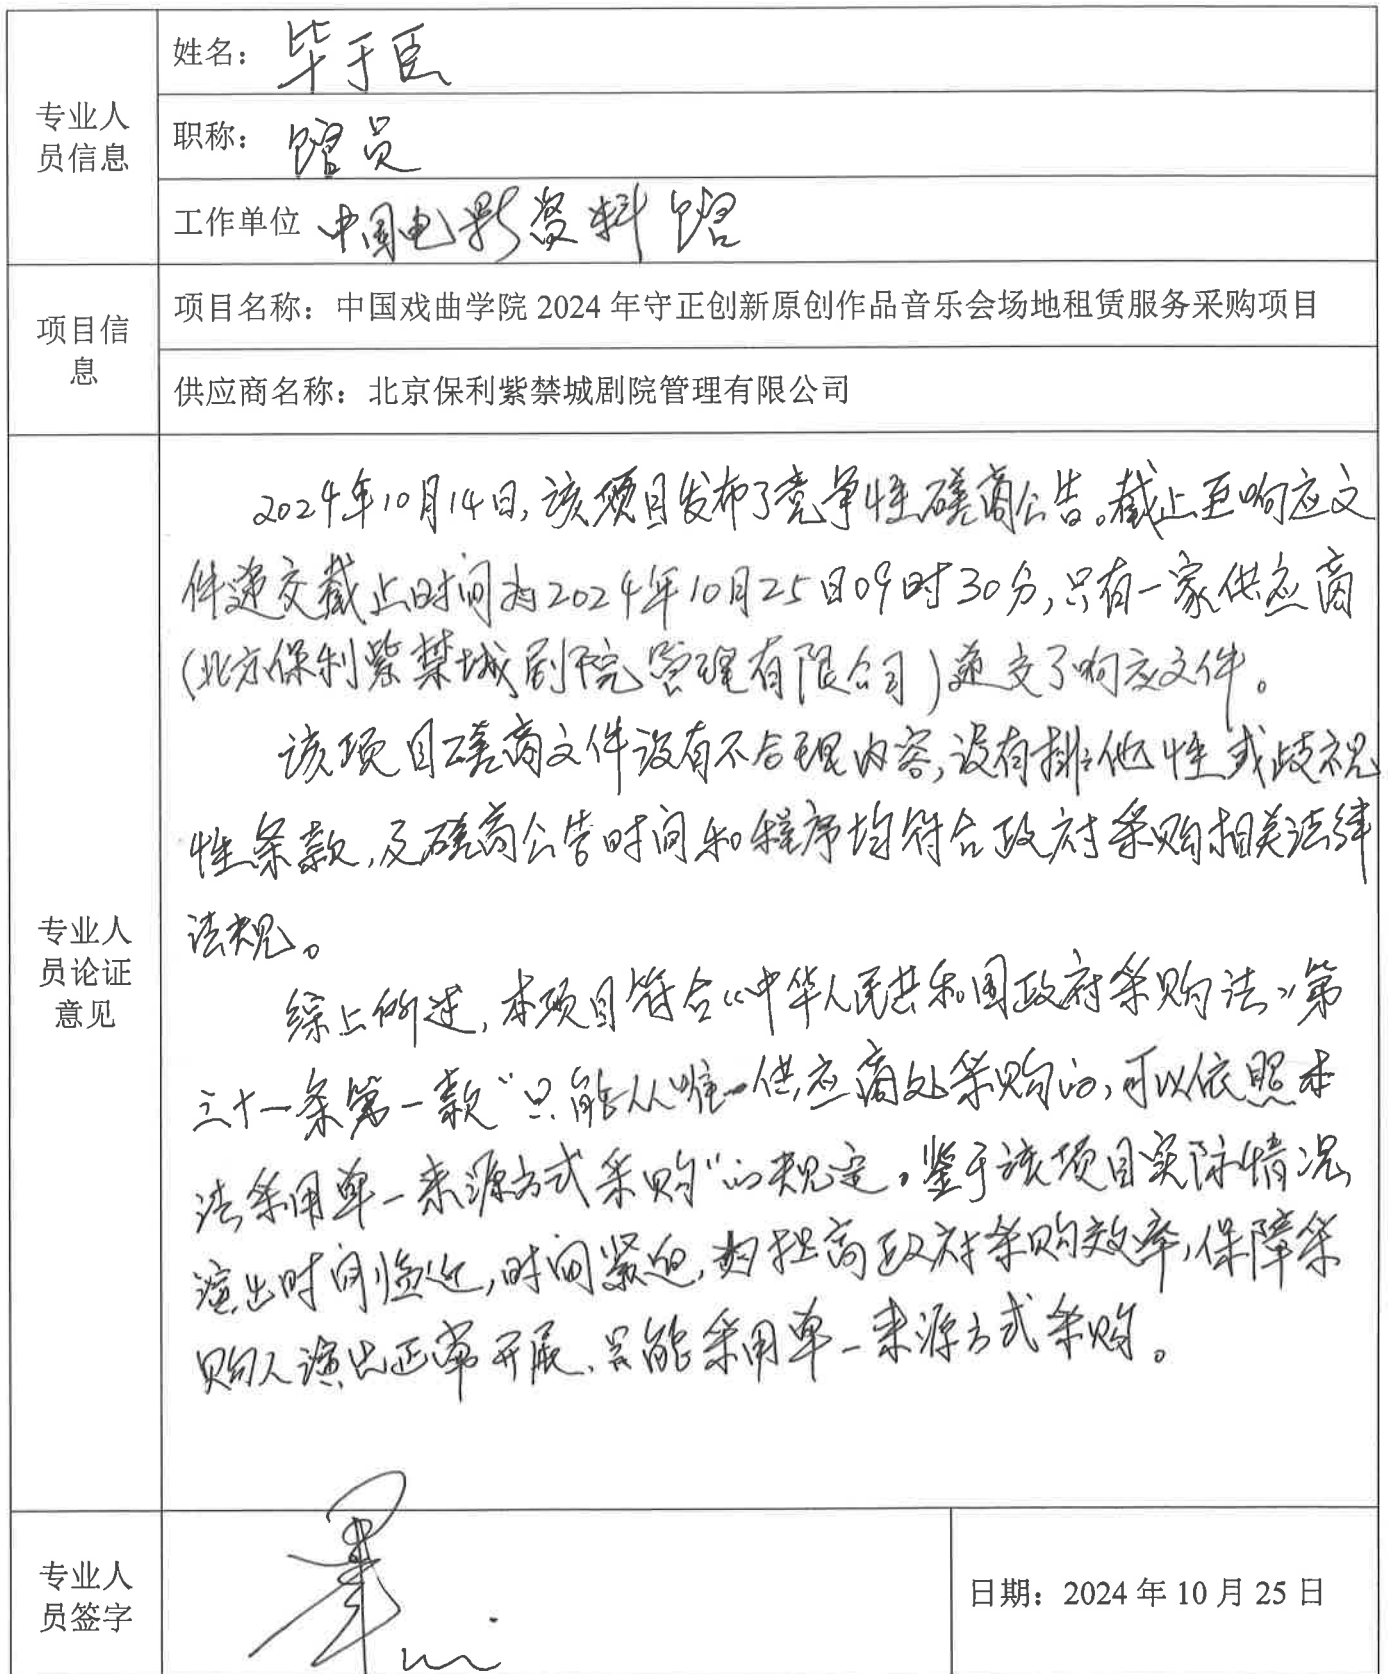 专业人
员信息
姓名：毕于臣
职称：馆员
工作单位 中国电影资料馆
项目信
息
项目名称：中国戏曲学院 2024 年守正创新原创作品音乐会场地租赁服务采购项目
供应商名称：北京保利紫禁城剧院管理有限公司
专业人
员论证
意见
2024年10月14日,该项目发布了竞争性磋商公告。截止至响应文
件递交截止时间为2024年10月25日09时30分,只有一家供应商
(北京保利紫禁城剧院管理有限公司)递交了响应文件。
该项目磋商文件没有不合理内容,没有排他性或歧视
性条款,及磋商公告时间和程序均符合政府采购相关法律
法规。
综上所述,本项目符合《中华人民共和国政府采购法》第
三十一条第一款“只能从唯一供应商处采购的,可以依照本
法采用单一来源方式采购”的规定。鉴于该项目实际情况
演出时间临近,时间紧迫,为提高政府采购效率,保障采
购人演出正常开展、只能采用单一来源方式采购。
专业人
员签字
日期：2024 年 10 月 25 日